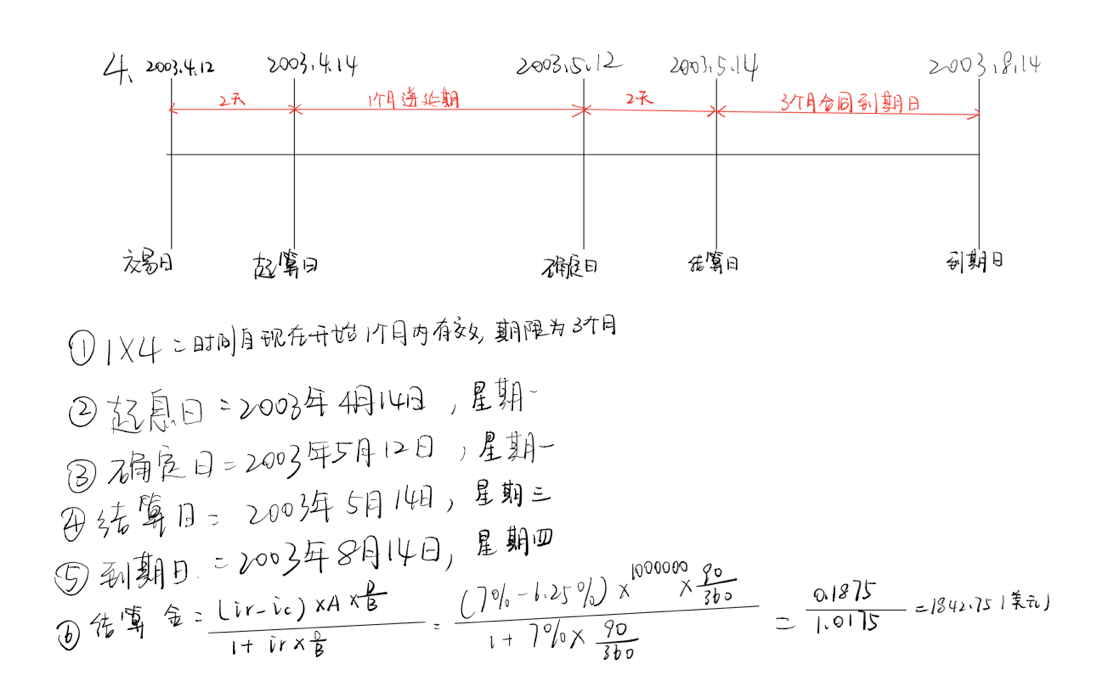 4. 2003.4.12 2003.4.14 2003.5.12 2003.5.14 2003.8.14
2天 1个月递延期 2天 3个月合同到期日
交易日 起算日 确定日 结算日 到期日
① 1×4 = 时间自现在开始1个月内有效, 期限为3个月
② 起息日 = 2003年4月14日, 星期一
③ 确定日 = 2003年5月12日, 星期一
④ 结算日 = 2003年5月14日, 星期三
⑤ 到期日. = 2003年8月14日, 星期四
⑥ 结算金 = (ir-ic)×A×D/B / 1+ir×D/B = (7%-6.25%)×1000000×90/360 / 1+7%×90/360 = 0.1875/1.0175 = 1842.75(美元)